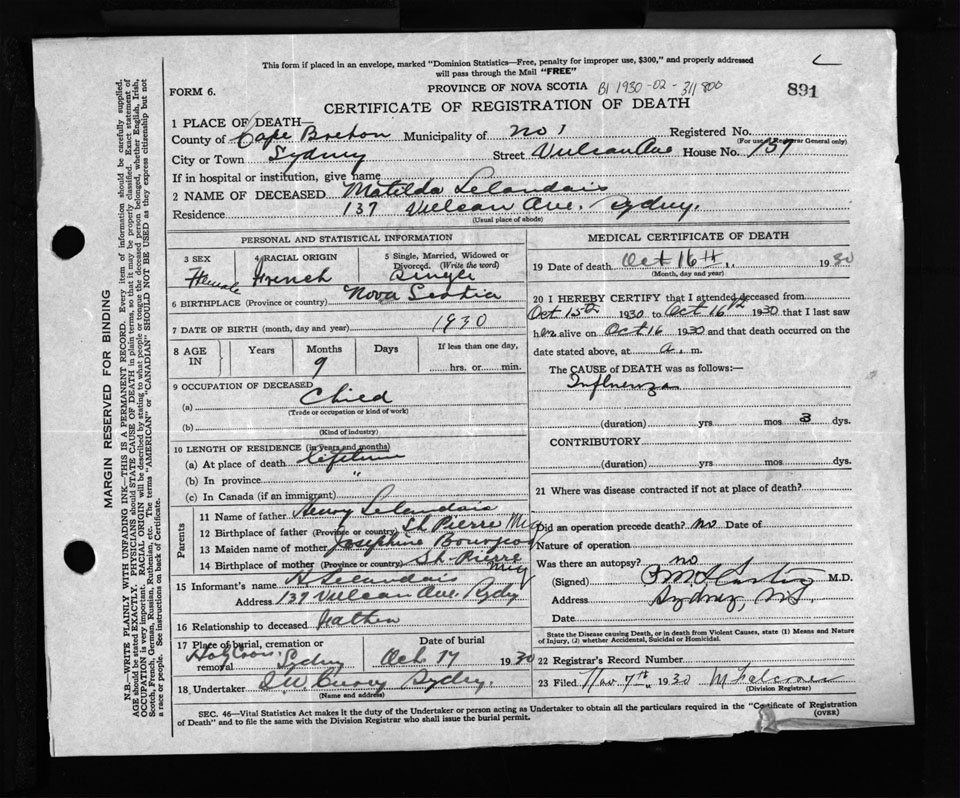 This form if placed in an envelope, marked "Dominion Statistics—Free, penalty for improper use, $300," and properly addressed
will pass through the Mail "FREE"
PROVINCE OF NOVA SCOTIA B1 1930-02-311800
891
FORM 6.
CERTIFICATE OF REGISTRATION OF DEATH
1 PLACE OF DEATH—
County of Cape Breton Municipality of No 1 Registered No.
(For use of Registrar General only)
City or Town Sydney Street Vulcan Ave House No. 137
If in hospital or institution, give name
2 NAME OF DECEASED Matilda Lelandais
Residence 137 Vulcan Ave. Sydney.
(Usual place of abode)
PERSONAL AND STATISTICAL INFORMATION
3 SEX 4 RACIAL ORIGIN 5 Single, Married, Widowed or
Divorced. (Write the word)
Female French Single
6 BIRTHPLACE (Province or country) Nova Scotia
7 DATE OF BIRTH (month, day and year) 1930
8 AGE IN Years Months Days If less than one day,
9 hrs. or min.
9 OCCUPATION OF DECEASED
(a) Child
(Trade or occupation or kind of work)
(b)
(Kind of industry)
10 LENGTH OF RESIDENCE (in years and months)
(a) At place of death lifetime
(b) In province "
(c) In Canada (if an immigrant)
Parents
11 Name of father Henry Lelandais
12 Birthplace of father (Province or country) St. Pierre Miq
13 Maiden name of mother Josephine Bourgeois
14 Birthplace of mother (Province or country) St. Pierre Miq
15 Informant's name H Lelandais
Address 137 Vulcan Ave. Sydney
16 Relationship to deceased Father
17 Place of burial, cremation or removal Date of burial
Sydney Oct 17 1930
18 Undertaker Sydney.
(Name and address)
MEDICAL CERTIFICATE OF DEATH
19 Date of death Oct 16th 1930
(Month, day and year)
20 I HEREBY CERTIFY that I attended deceased from
Oct 15th 1930 to Oct 16th 1930 that I last saw
her alive on Oct 16 1930 and that death occurred on
the date stated above, at a. m.
The CAUSE of DEATH was as follows:—
Influenza
(duration) yrs mos 3 dys.
CONTRIBUTORY
(duration) yrs mos dys.
21 Where was disease contracted if not at place of death?
Did an operation precede death? no Date of
Nature of operation
Was there an autopsy? no
(Signed) M.D.
Address Sydney, N.S.
Date
State the Disease causing Death, or in death from Violent Causes, state (1) Means and Nature
of Injury, (2) whether Accidental, Suicidal or Homicidal.
22 Registrar's Record Number
23 Filed Nov 7th 1930
(Division Registrar)
SEC. 46—Vital Statistics Act makes it the duty of the Undertaker or person acting as Undertaker to obtain all the particulars required in the "Certificate of Registration
of Death" and to file the same with the Division Registrar who shall issue the burial permit. (OVER)
MARGIN RESERVED FOR BINDING
N.B.—WRITE PLAINLY WITH UNFADING INK—THIS IS A PERMANENT RECORD. Every item of information should be carefully supplied.
AGE should be stated EXACTLY. PHYSICIANS should STATE CAUSE OF DEATH in plain terms, so that it may be properly classified. Exact statement of
OCCUPATION is very important. RACIAL ORIGIN will be described by stating to what people or tongue the deceased person belonged, whether English, Irish,
Scotch, French, German, Russian, Ruthenian, etc. The terms "AMERICAN" or "CANADIAN" SHOULD NOT BE USED as they express citizenship but not
a race or people. See instructions on back of Certificate.